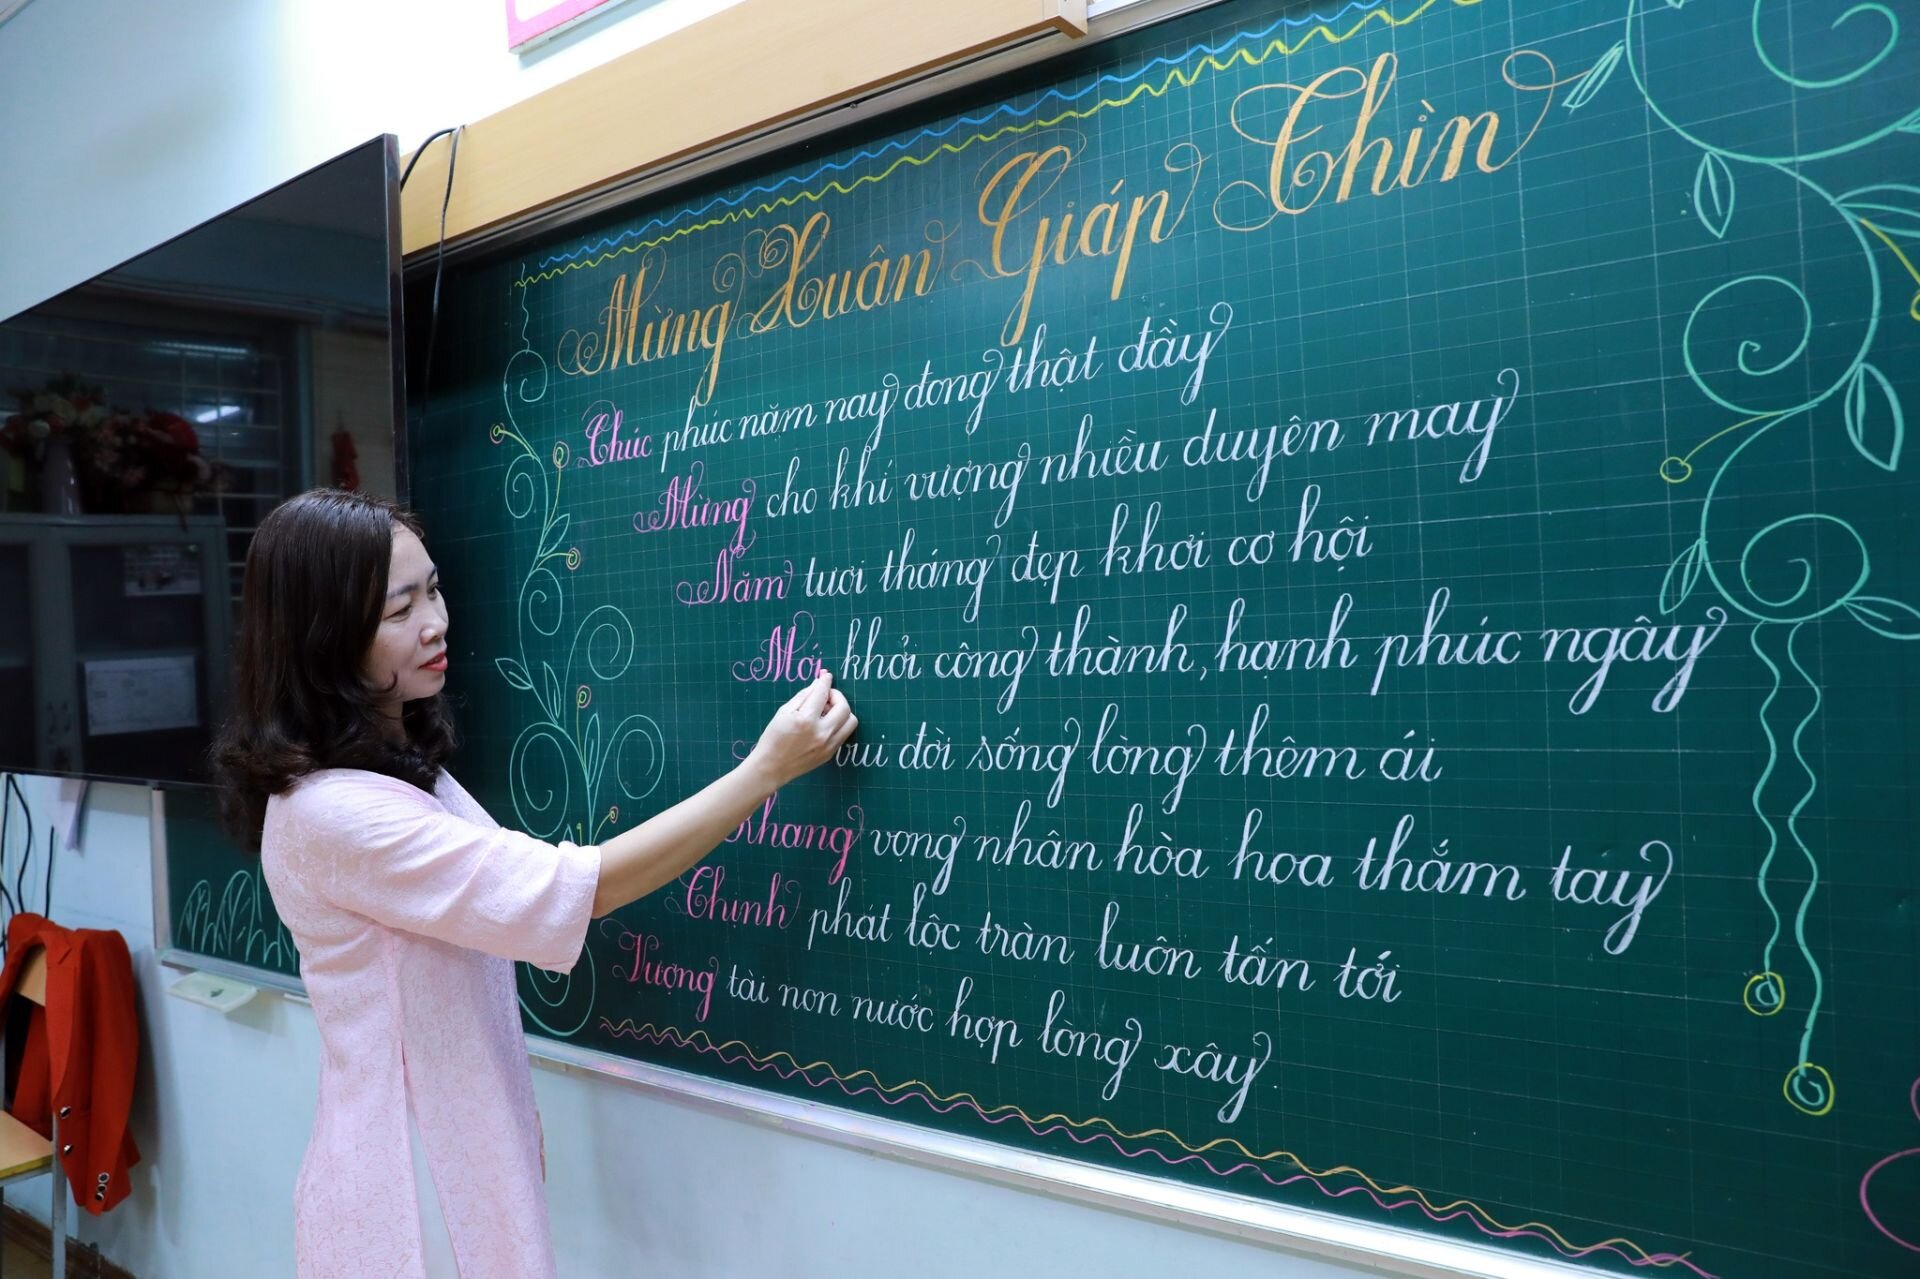 Mừng Xuân Giáp Thìn
Chúc phúc năm nay đong thật đầy
Mừng cho khí vượng nhiều duyên may
Năm tươi tháng đẹp khơi cơ hội
Mới khởi công thành, hạnh phúc ngây
vui đời sống lòng thêm ái
Khang vọng nhân hòa họa thắm tay
Chịnh phát lộc tràn luôn tấn tới
Vượng tài non nước hợp lòng xây